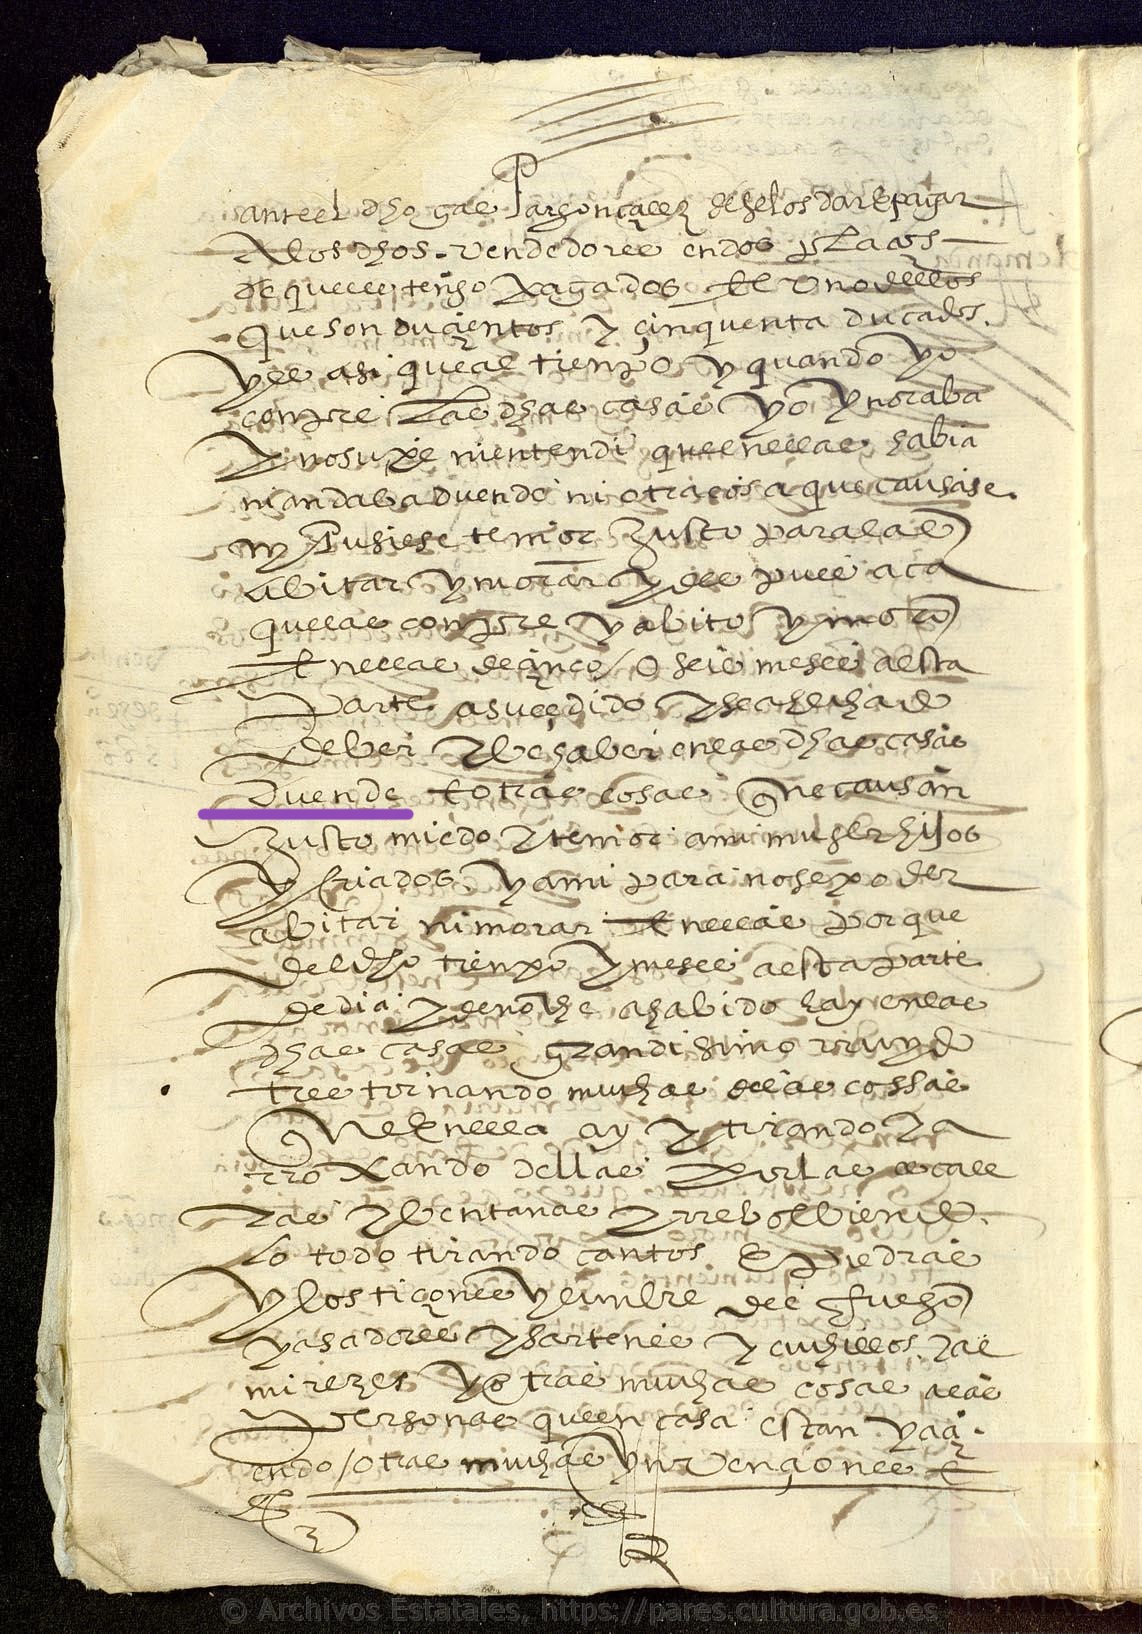 ante el dho gas Par gonçalez de se los dar E pagar
A los dhos vendedores en dos plaços
de que les tengo pagados El uno dellos
que son duçientos y çinquenta ducados.
y es asi que al tienpo y quando yo
conpre Las dhas casas yo ynoraba
y no supe ni entendi que en ellas habia
ni andaba duende ni otra cosa que causase.
ny pusiese temor Justo para las
abitar y morar y des pues aca
que las conpre y abito y moro
En ellas de çinco / o seis meses a esta
Parte a suçedido y se a hechado
de ber y be haber en las dhas casas
Duende E otras cosas que causan
Justo miedo y temor a mi muger hijos
y criados y a mi para no se poder
abitar ni morar En ellas porque
del dho tienpo y meses a esta parte
de dia y de noche a habido hay en las
dhas casas grandisimo rruydo
tras tornando muchas de las cossas
que En ella ay y tirando y a
rro xando dellas por las escale
ras y bentanas y rrebolbiendo
lo todo tirando cantos E Piedras
y los tiçones y lunbre del fuego
y asadores y sartenes y cuchillos, y al
mirezes y otras muchas cosas a las
Personas que en casa estan y haçi
endo / otras muchas ynvençiones E
© Archivos Estatales, https://pares.cultura.gob.es